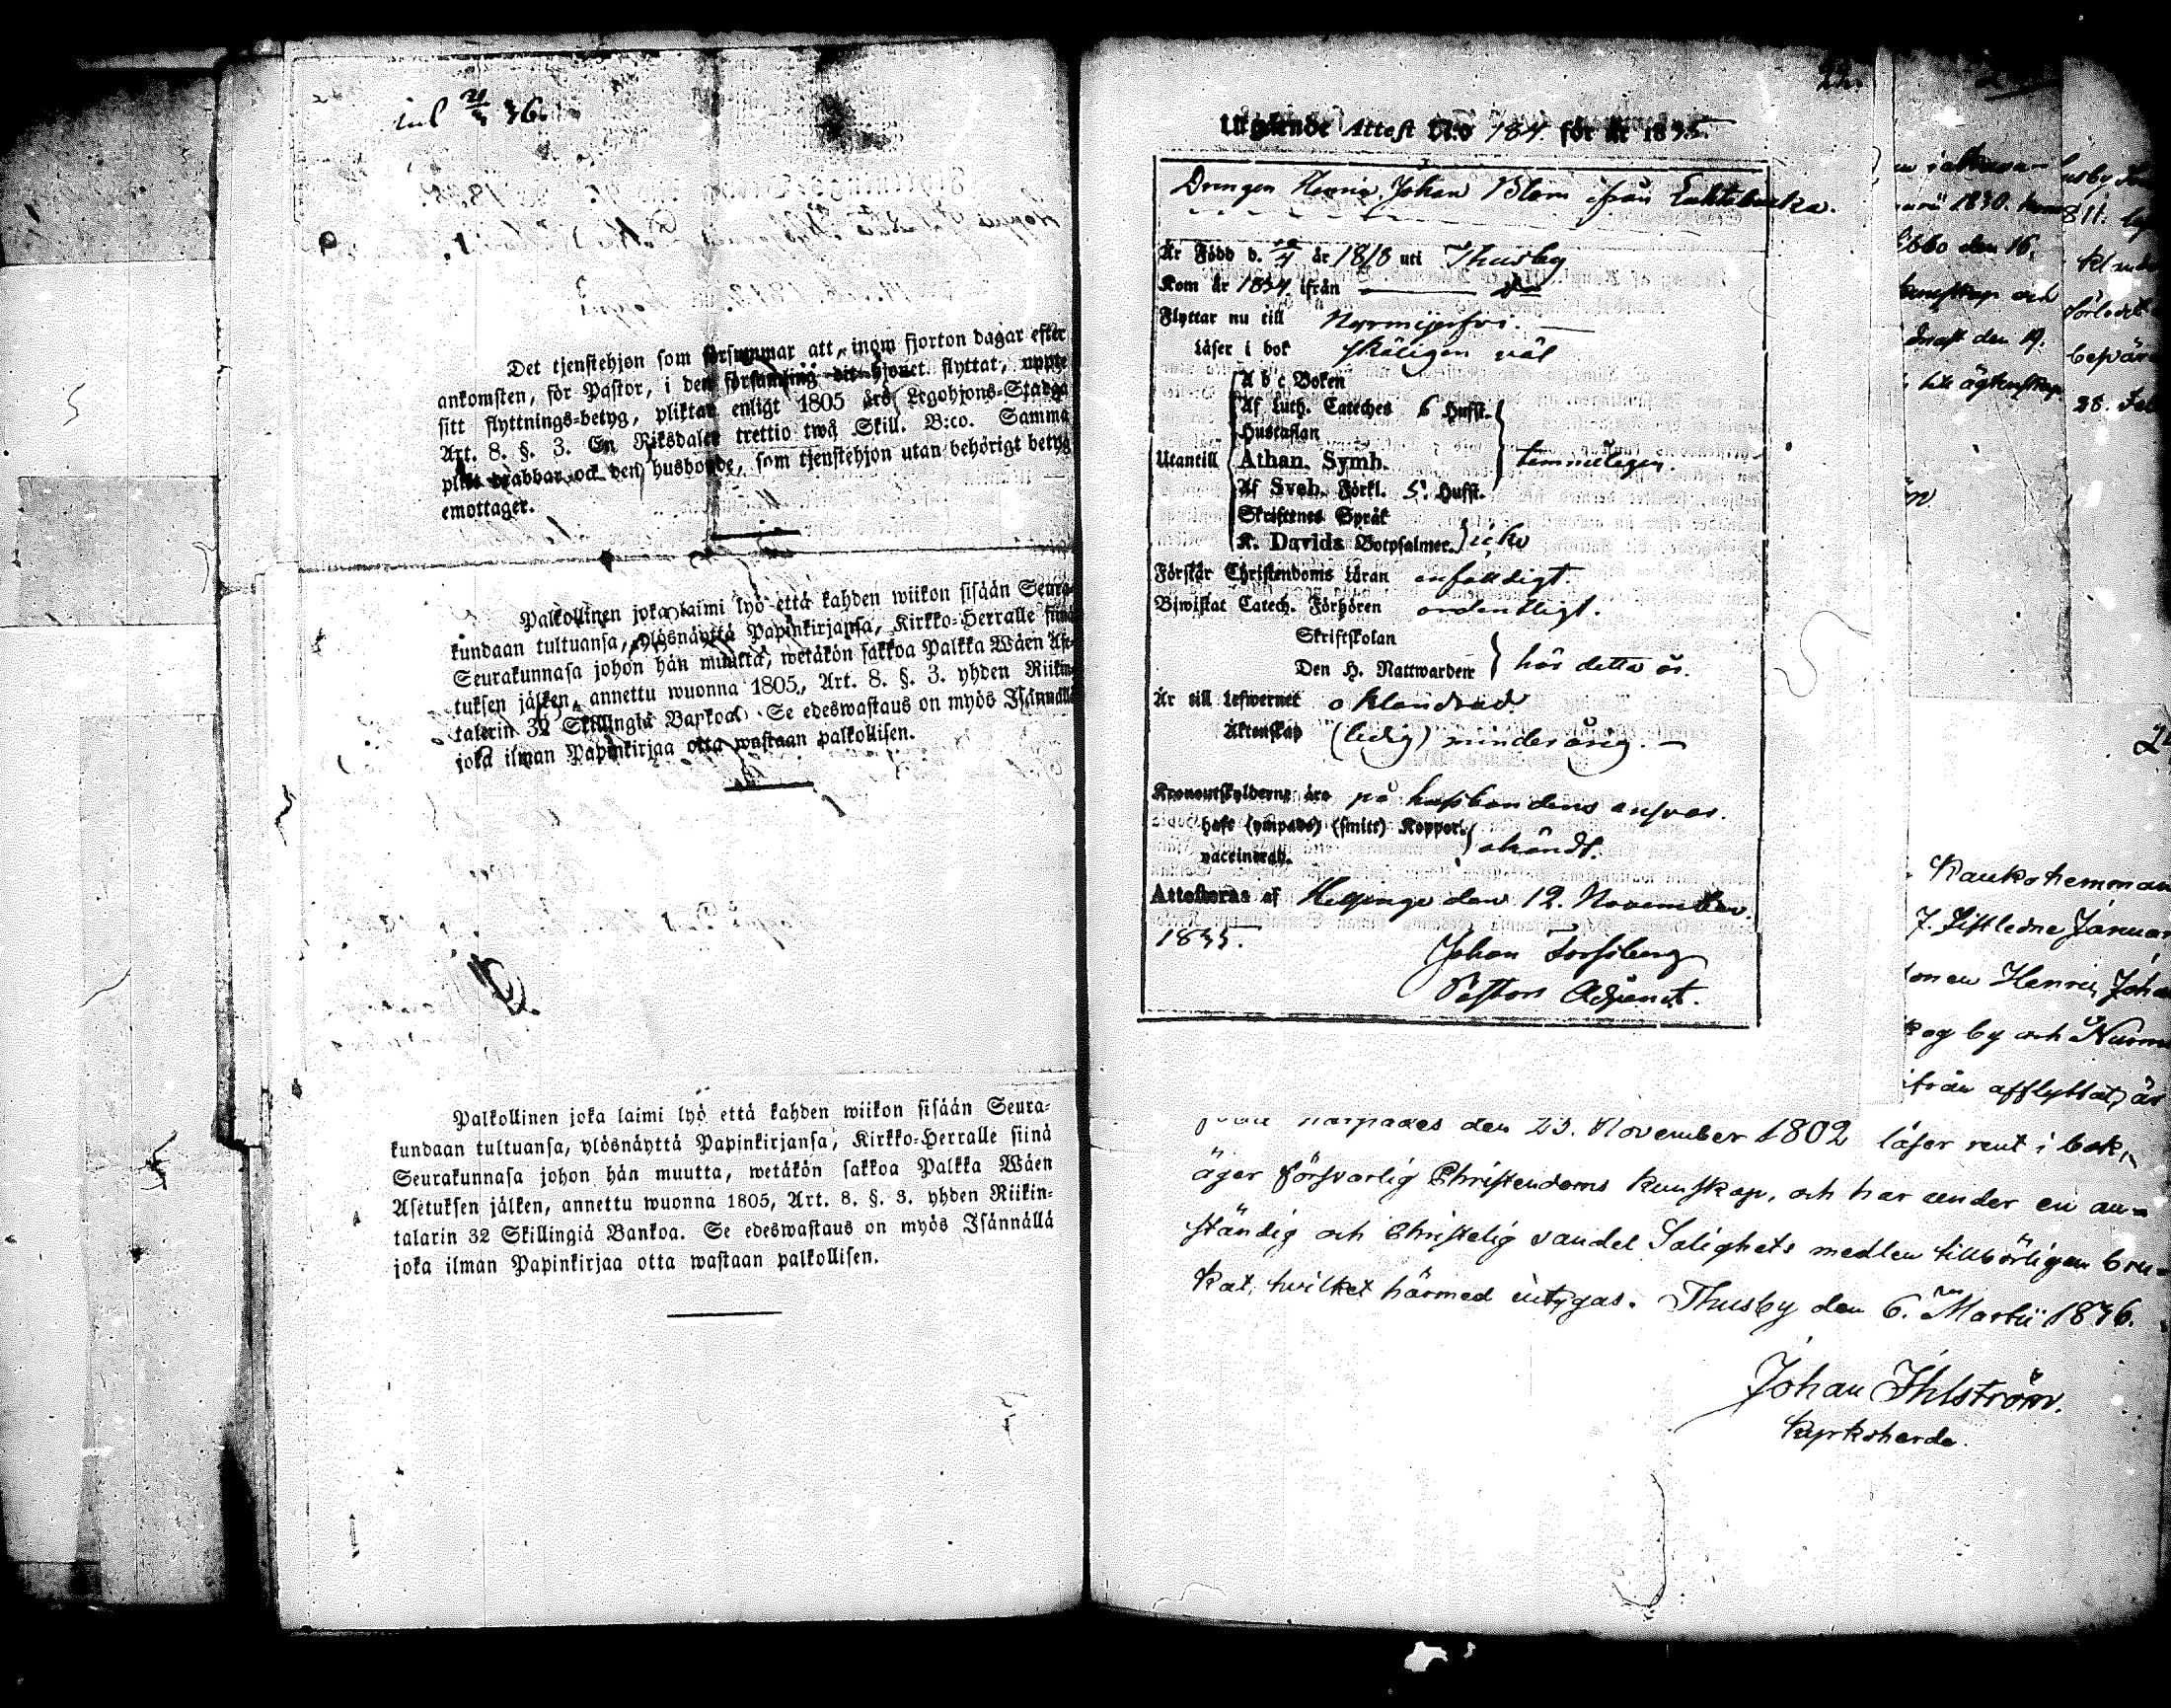 inl 36.
Det tjenstehjon som försummar att, inom fjorton dagar efter
ankomsten, för Pastor, i den församling dit hjonet flyttat, uppte
sitt flyttnings-betyg, pliktar enligt 1805 års Legohjons-Stadga
Art. 8. §. 3. En Riksdaler trettio twå Skill. B:co. Samma
plikt drabbar ock den husbonde, som tjenstehjon utan behörigt betyg
emottager.
Palkollinen joka laimi lyö että kahden wiikon sisään Seura-
kundaan tultuansa, ylösnäyttä Papinkirjansa, Kirkko-Herralle siinä
Seurakunnasa johon hän muutta, wetäkön sakkoa Palkka Wäen Ase-
tuksen jälken, annettu wuonna 1805, Art. 8. §. 3. yhden Riikin-
talerin 32 Skillingiä Bankoa. Se edeswastaus on myös Isännällä
joka ilman Papinkirjaa otta wastaan palkollisen.
Palkollinen joka laimi lyö että kahden wiikon sisään Seura-
kundaan tultuansa, ylösnäyttä Papinkirjansa, Kirkko-Herralle siinä
Seurakunnasa johon hän muutta, wetäkön sakkoa Palkka Wäen
Asetuksen jälken, annettu wuonna 1805, Art. 8. §. 3. yhden Riikin-
talarin 32 Skillingiä Bankoa. Se edeswastaus on myös Isännällä
joka ilman Papinkirjaa otta wastaan palkollisen.
22.
Utgående Attest N:o 184 för år 1835.
Drengen Henric Johan Blom ifrån
Är Född d. år 1818 uti Thusby
Kom år 1834 ifrån
Flyttar nu till Nurmijerfvi.
Läser i bok skäligen väl
A b c Boken
Af Luth. Cateches 6 Hufst.
Hustaflan
Utantill Athan. Symb. temmeligen.
Af Sveb. Förkl. 5 Hufst.
Skriftenes Språk
K. Davids Botpsalmer. icke
Förstår Christendoms Läran enfaldigt.
Biwistat Catech. Förhören ordentligt.
Skriftskolan
Den H. Nattwarden här detta år.
Är till Lefwernet oklandrad.
Äktenskap (ledig) minderårig.
Kronoutskylderne äro på husbondens ansvar.
haft (ympade) (smitt) Koppor.
vaccinerad. okändt.
Attesteras af Helsinge den 12. November
1835.
Johan Forsberg
Pastors Adjunct.
den 23. November 1802 läser rent i bok,
äger försvarlig Christendoms kunskap, och har under en an-
ständig och Christelig vandel Salighets medlen tillbörligen bru-
kat, hvilket härmed intygas. Thusby den 6. Martii 1836.
Johan Ihlström.
Kyrkoherde.
1830.
811.
Åbo den 16.
kunskap och
den 19.
28. Feb
Rauko hemman
7. Sistledne Januar
Henric Joha
by och Nurm
ifrån afflyttat, är